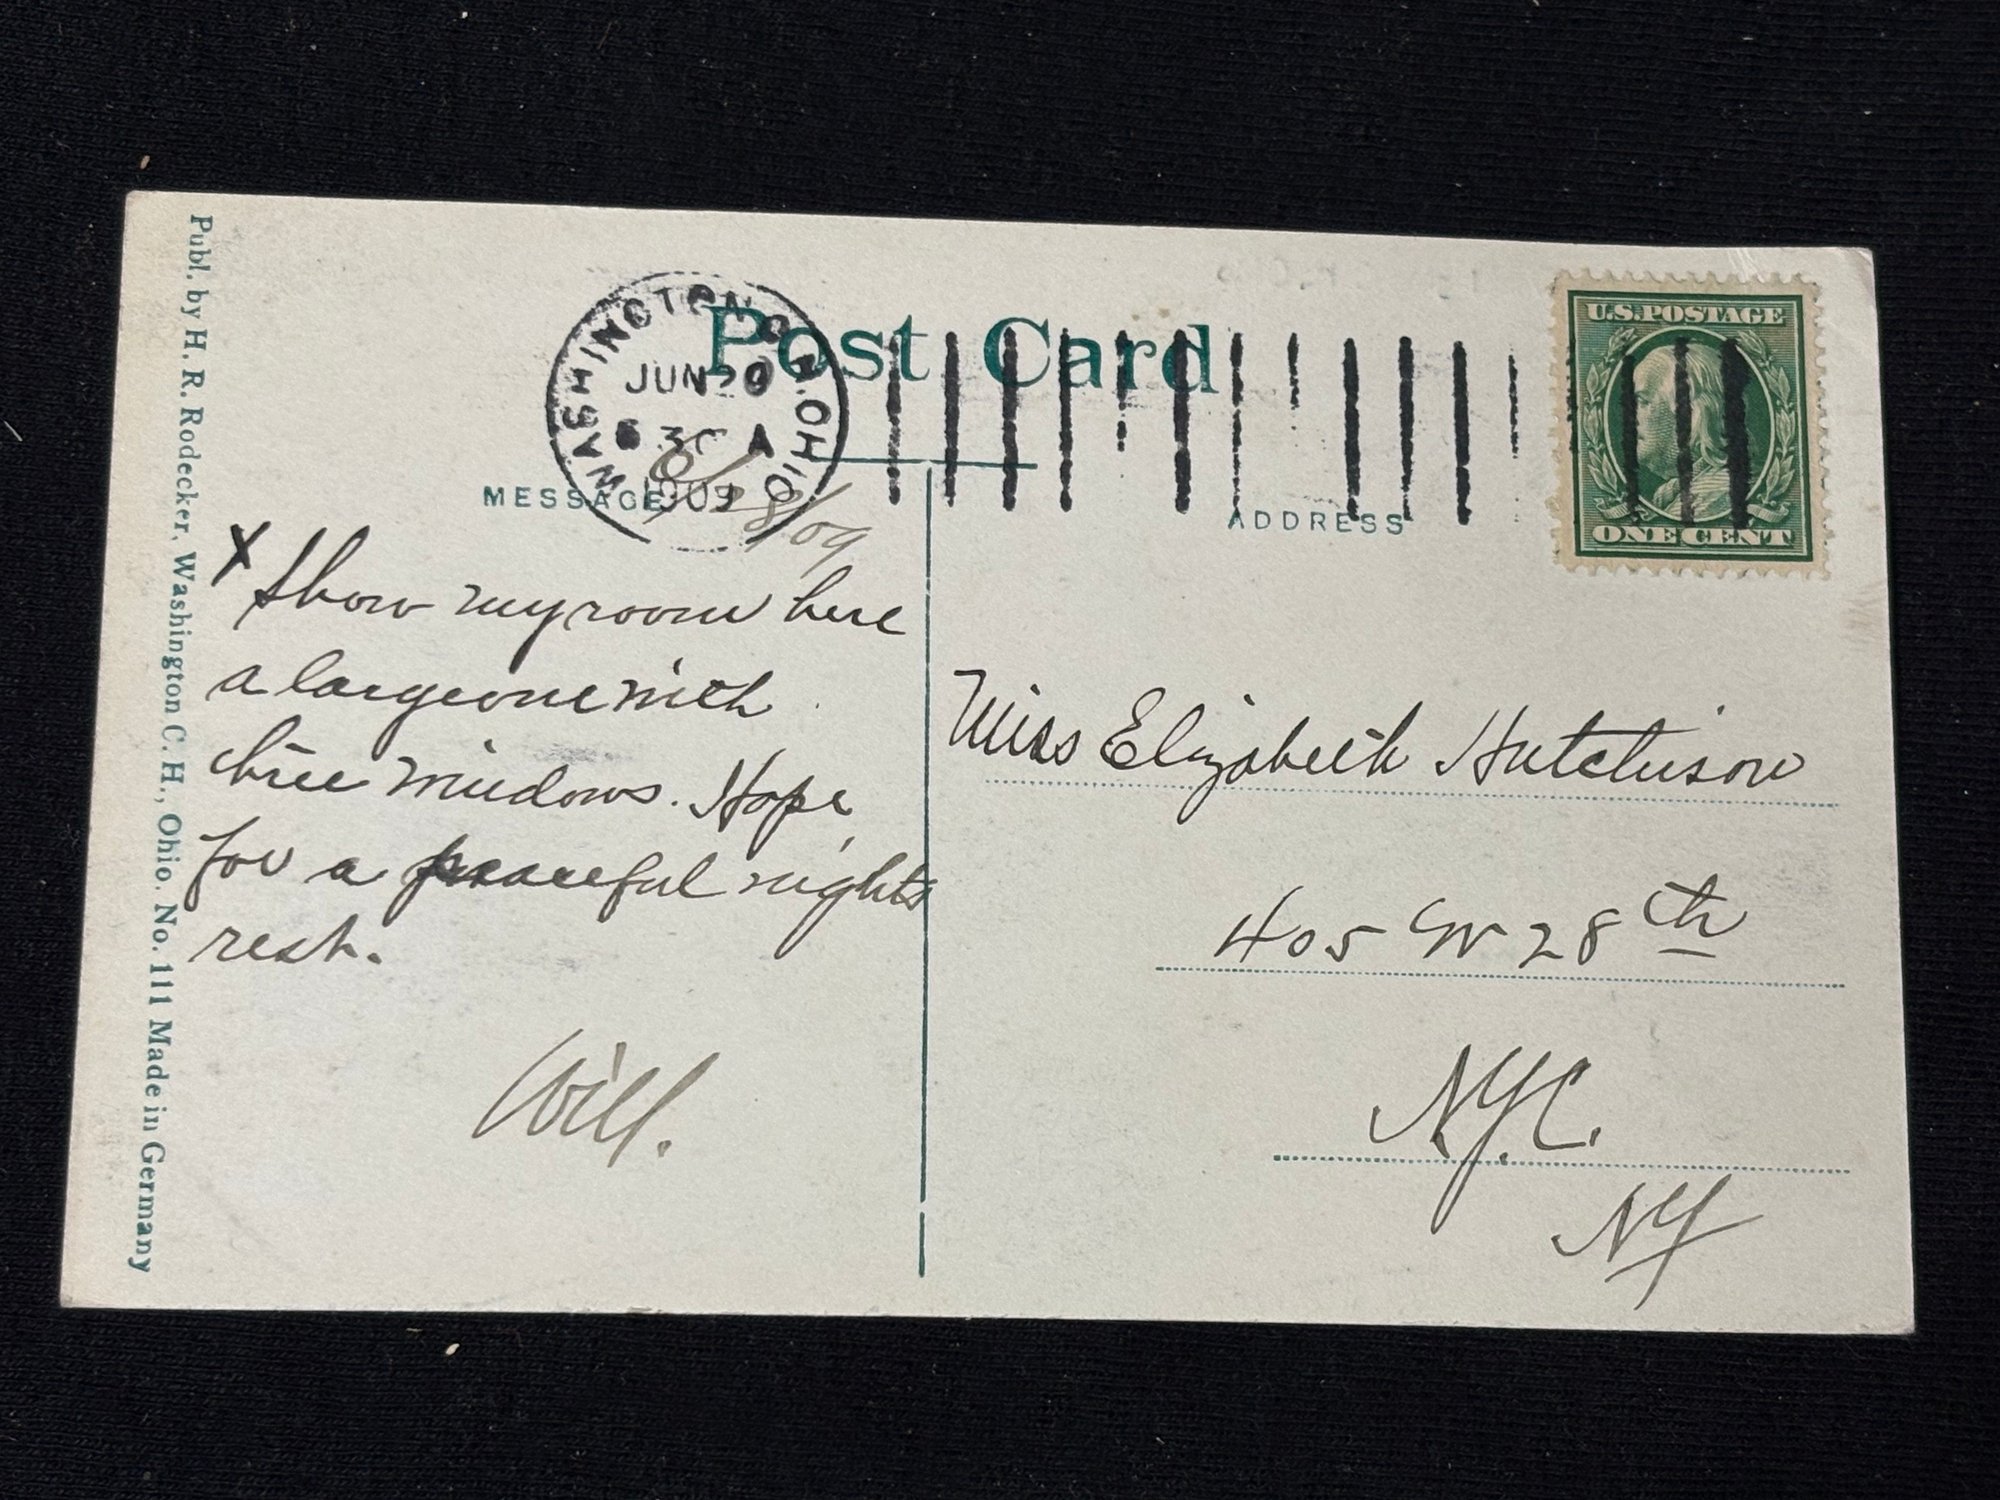 Post Card
WASHINGTON C.H. OHIO
JUN 29
30 A
1909
U.S. POSTAGE
ONE CENT
MESSAGE
ADDRESS
6/28/09
X Show my room here
a large one with
three windows. Hope
for a peaceful nights
rest.
Will.
Miss Elizabeth Hutchison
405 W 28th
N.Y.C.
NY
Publ. by H. R. Rodecker, Washington C. H., Ohio. No. 111 Made in Germany